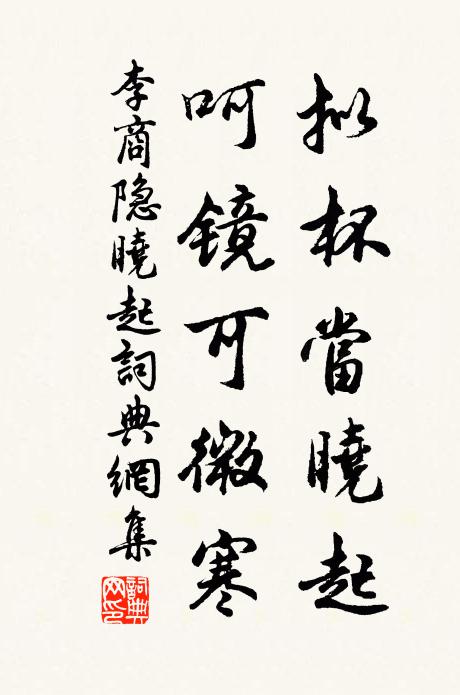 拟杯當曉起
呵镜可微寒
李商隐曉起詞典網集
詞典网印